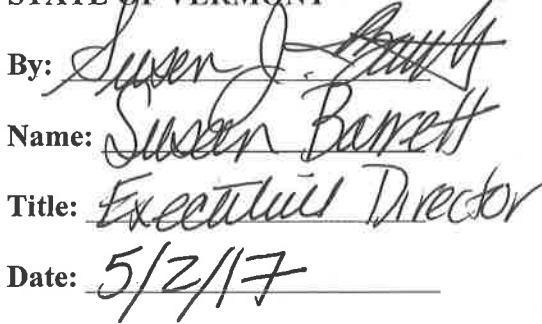 STATE OF VERMONT
By: Susan J. Barrett
Name: Susan Barrett
Title: Executive Director
Date: 5/2/17